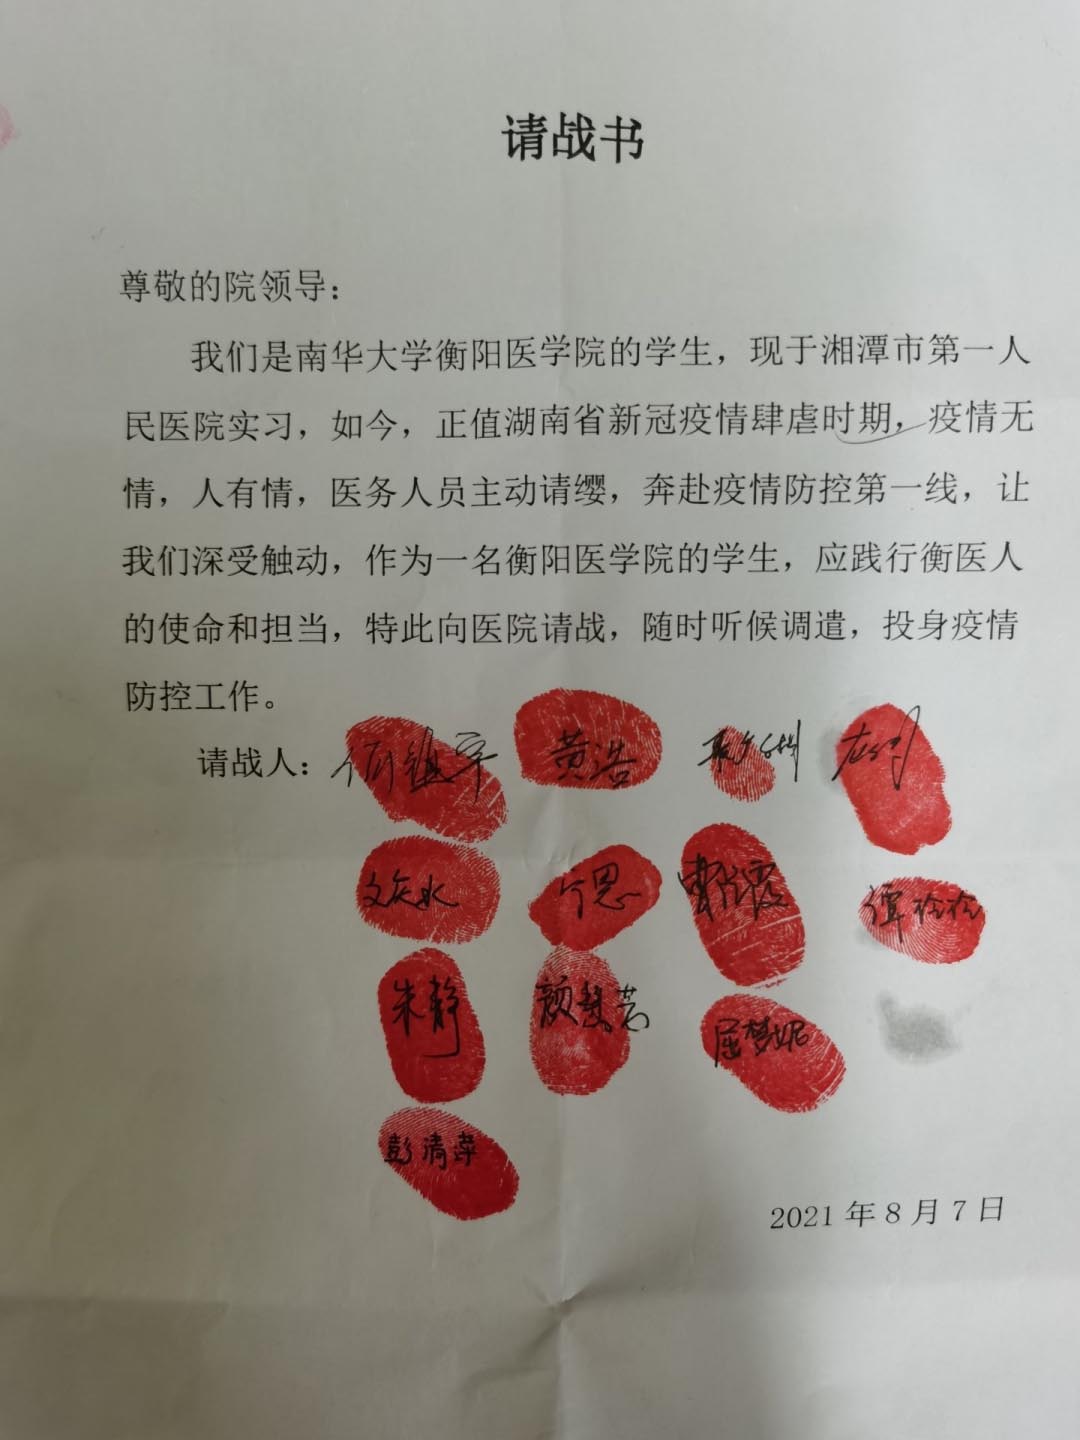 请战书
尊敬的院领导：
我们是南华大学衡阳医学院的学生，现于湘潭市第一人
民医院实习，如今，正值湖南省新冠疫情肆虐时期，疫情无
情，人有情，医务人员主动请缨，奔赴疫情防控第一线，让
我们深受触动，作为一名衡阳医学院的学生，应践行衡医人
的使命和担当，特此向医院请战，随时听候调遣，投身疫情
防控工作。
请战人： 黄浩
宁思 谭玲玲
朱静 颜慧芳 屈梦妮
彭清萍
2021年8月7日